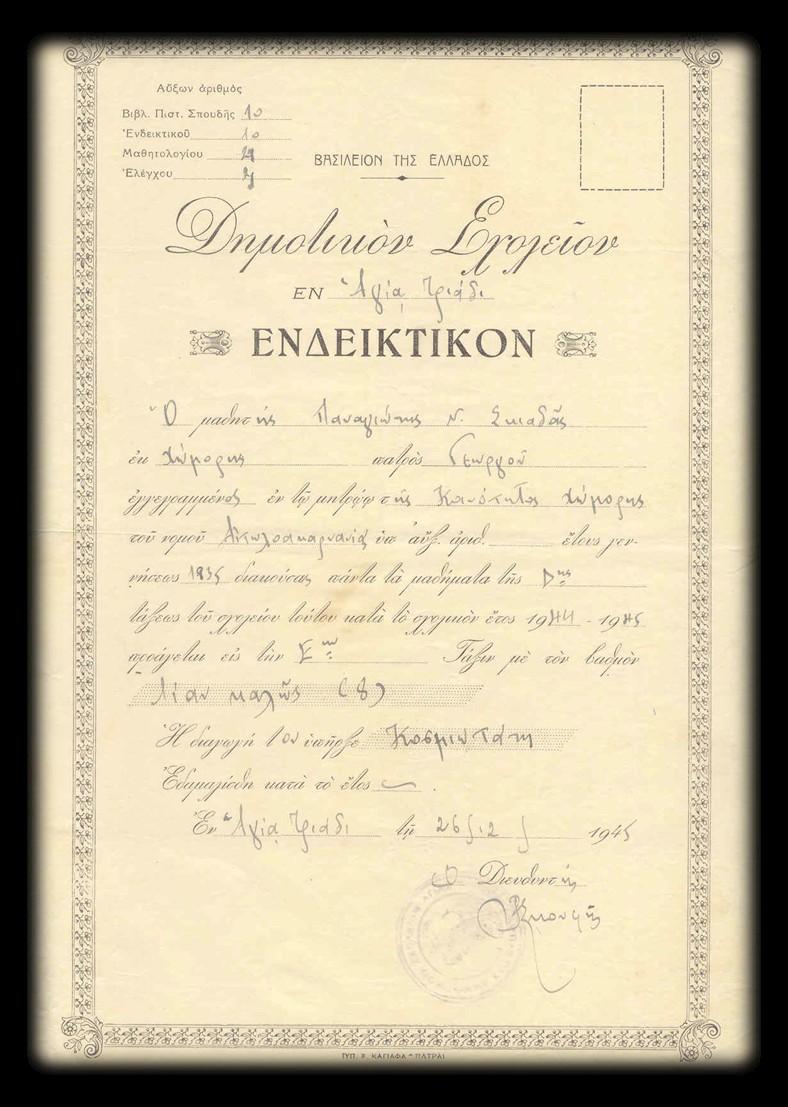 Αὔξων ἀριθμὸς
Βιβλ. Πιστ. Σπουδῆς 10
Ἐνδεικτικοῦ 10
Μαθητολογίου
Ἐλέγχου
ΒΑΣΙΛΕΙΟΝ ΤΗΣ ΕΛΛΑΔΟΣ
Δημοτικὸν Σχολεῖον
ΕΝ Ἁγίᾳ Τριάδι
ΕΝΔΕΙΚΤΙΚΟΝ
Ὁ μαθητής Παναγιώτης Ν. Σκιαδᾶς
ἐκ Χώμορης πατρὸς Γεωργοῦ
ἐγγεγραμμένος ἐν τῷ μητρώῳ τῆς Κοινότητος Χώμορης
τοῦ νομοῦ Αἰτωλοακαρνανίας ὑπ' αὔξ. ἀριθ. ἔτους γεν-
νήσεως 1935 διακούσας πάντα τὰ μαθήματα τῆς Δης
τάξεως τοῦ σχολείου τούτου κατὰ τὸ σχολικὸν ἔτος 1944 - 1945
προάγεται εἰς τὴν Ε Τάξιν μὲ τὸν βαθμὸν
Λίαν καλῶς (8)
Ἡ διαγωγή του ὑπῆρξε Κοσμιωτάτη
Ἐδαμαλίσθη κατὰ τὸ ἔτος
Ἐν Ἁγίᾳ Τριάδι τῇ 26 12 1945
Ὁ Διευθυντής
ΤΥΠ. Β. ΚΑΓΙΑΦΑ - ΠΑΤΡΑΙ